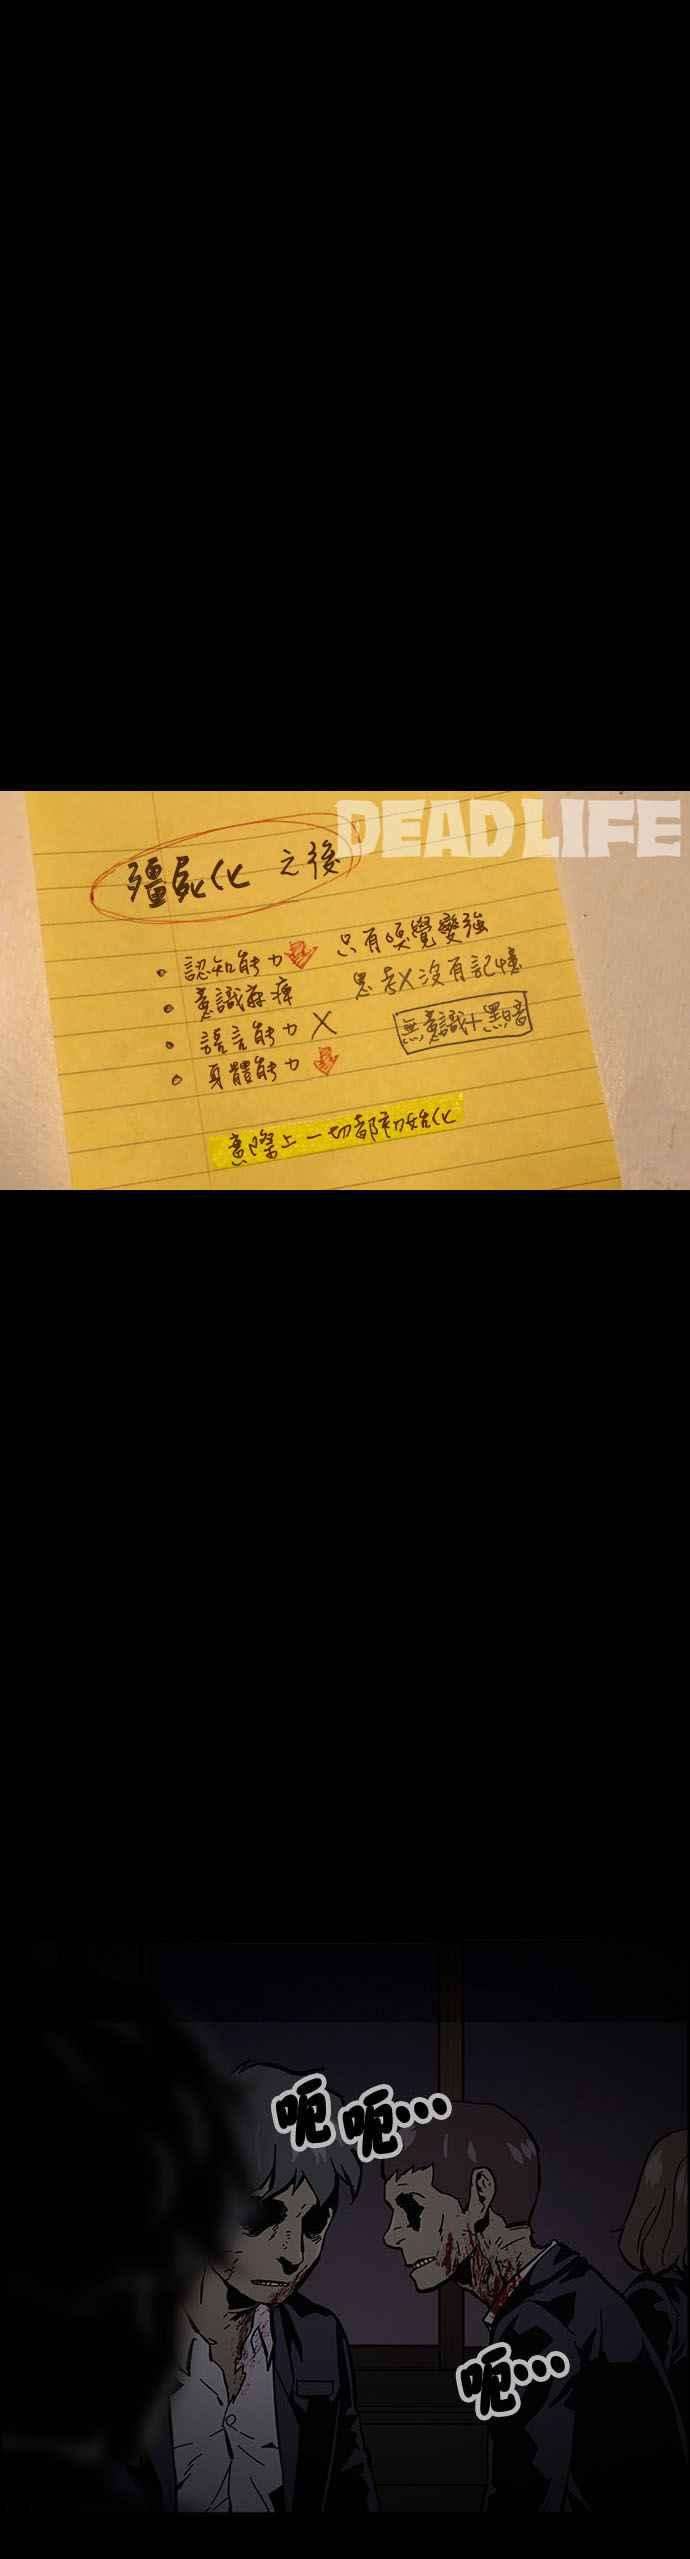 DEAD LIFE
殭屍化 之後
認知能力 只有嗅覺變強
意識麻痺 思考X沒有記憶
語言能力 X 無意識+黑暗
身體能力
實際上一切都初始化
呃呃…
呃…